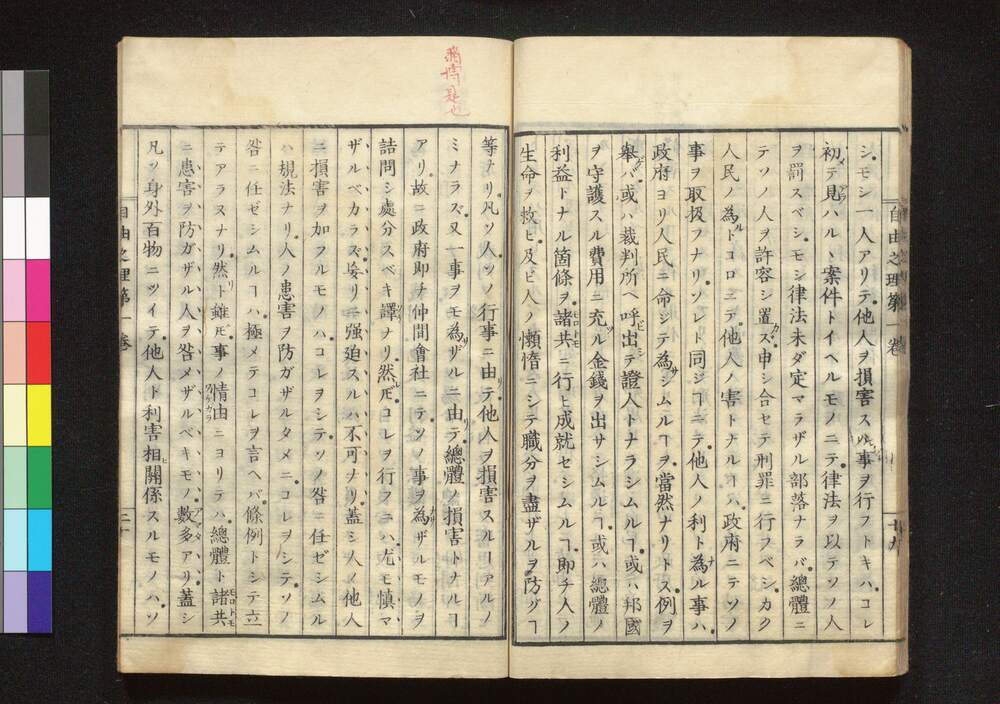 シ。モシ一人アリテ他人ヲ損害スル事ヲ行フトキハ。コレ
初メテ見ハルヽ案件トイヘルモノニテ。律法ヲ以テソノ人
ヲ罰スベシ。モシ律法未ダ定マラザル部落ナラバ。總體ニ
テソノ人ヲ許容シ置カズ。申シ合セテ刑罪ニ行フベシ。カク
人民ノ為ルトコロニテ。他人ノ害トナルヿハ。政府ニテソノ
事ヲ取扱フナリ。ソレト同ジヿニテ。他人ノ利ト為ナル事ハ。
政府ヨリ人民ニ命ジテ為サシムルヿヲ。當然ナリトス。例ヲ
舉グバ。或ハ裁判所ヘ呼ビ出シテ證人トナラシムルヿ。或ハ邦國
ヲ守護スル費用ニ充ツル金錢ヲ出サシムルヿ。或ハ總體ノ
利益トナル箇條ヲ。諸共モロトモニ行ヒ成就セシムルヿ。即チ人ノ
生命ヲ救ヒ。及ビ人ノ懶惰ニシテ職分ヲ盡ザルヲ防グヿ
自由之理第一卷
十九
等ナリ。凡ソ人ソノ行事ニ由リテ。他人ヲ損害スルヿアルノ
ミナラズ。又一事ヲモ為ザルニ由リテ。總體ノ損害トナルヿ
アリ。故ニ政府即チ仲間會社ニテ。ソノ事ヲ為ザルモノヲ
詰問シ處分スベキ譯ナリ。然レドモコレヲ行フニハ。尤モ慎マ
ザルベカラズ。妄リニ強迫スルハ不可ナリ。蓋シ人ノ他人
ニ損害ヲ加フルモノハ。コレヲシテソノ咎ニ任ゼシムル
ハ規法ナリ。人ノ患害ヲ防ガザルタメニ。コレヲシテソノ
咎ニ任ゼシムルヿハ。極メテコレヲ言ヘバ。條例トシテ立
テアラヌナリ。然リト雖ドモ。事ノ情由ワケガラニヨリテハ。總體ト諸共モロトモ
ニ患害ヲ防ガザル人ヲ咎メザルベキモノ。數多アマタアリ。蓋シ
凡ソ身外百物ニツイテ。他人ト利害相關係スルモノハ。ソ
自由之理第一卷
二十
是也